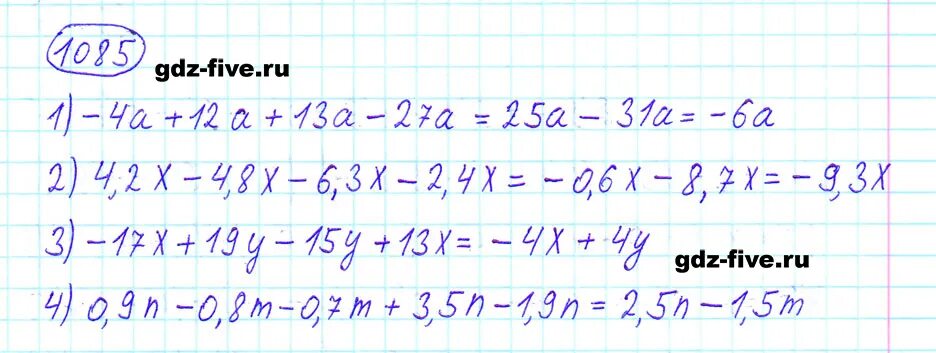 1085
gdz-five.ru
1) -4a + 12a + 13a - 27a = 25a - 31a = -6a
2) 4,2x - 4,8x - 6,3x - 2,4x = -0,6x - 8,7x = -9,3x
3) -17x + 19y - 15y + 13x = -4x + 4y
gdz-five.ru
4) 0,9n - 0,8m - 0,7m + 3,5n - 1,9n = 2,5n - 1,5m